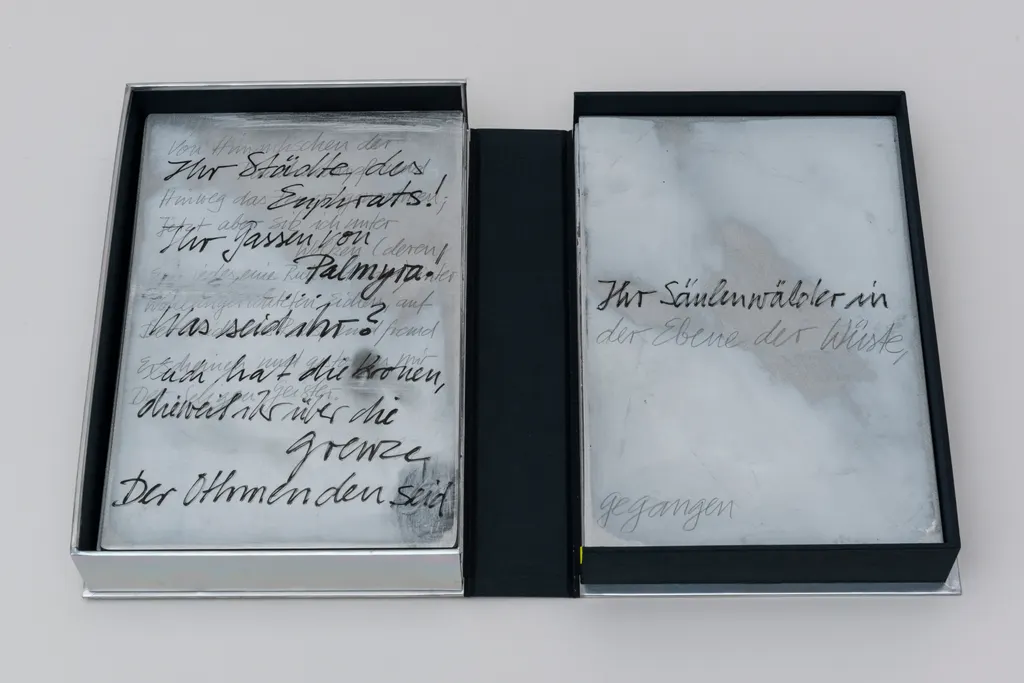 Von Himmlischen der
Ihr Städte des
Hinweg das
Euphrats!
Jetzt aber sitz ich unter
Ihr Gassen von
Wolken (deren
Palmyra.
Ein jedes eine
auf
Was seid ihr?
Euch hat die Kronen,
dieweil ihr über die
Grenze
Der Othmenden seid
Ihr Säulenwälder in
der Ebene der Wüste,
gegangen